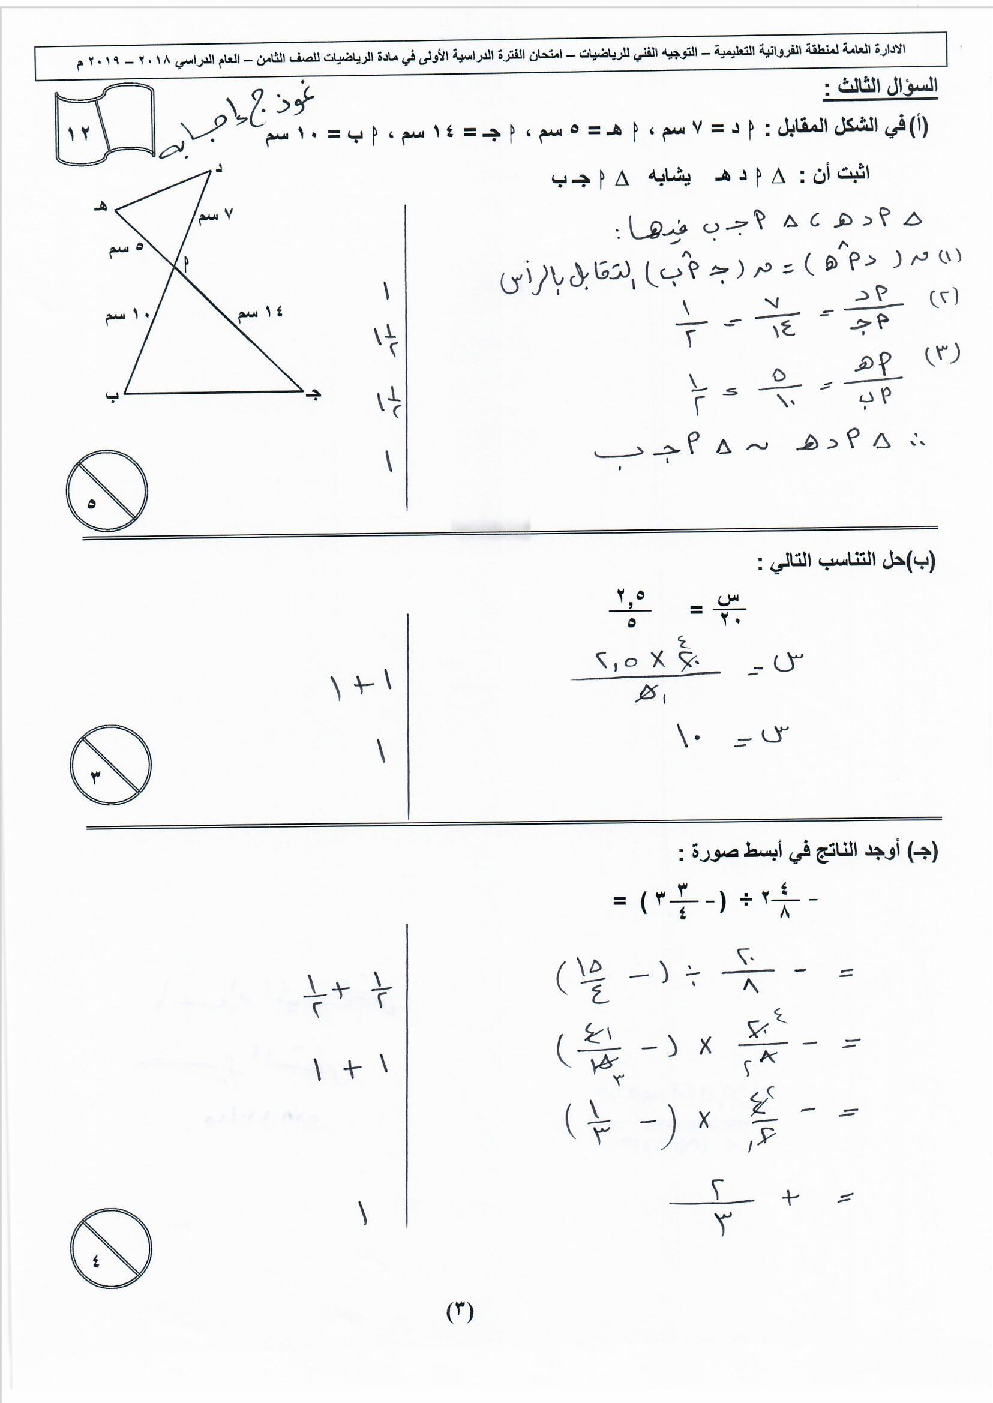 الادارة العامة لمنطقة الفروانية التعليمية – التوجيه الفني للرياضيات – امتحان الفترة الدراسية الأولى في مادة الرياضيات للصف الثامن – العام الدراسي ٢٠١٨ – ٢٠١٩ م
السؤال الثالث :
نموذج إجابة
١٢
(أ) في الشكل المقابل : م د = ٧ سم ، م هـ = ٥ سم ، م جـ = ١٤ سم ، م ب = ١٠ سم
اثبت أن : Δ م د هـ يشابه Δ م جـ ب
د
هـ
٧ سم
٥ سم
م
١٠ سم
١٤ سم
ب
جـ
Δ م د هـ ، Δ م جـ ب فيها :
(١) ن ( د م̂ هـ ) = ن ( جـ م̂ ب ) للتقابل بالرأس ١
(٢) م د / م جـ = ٧ / ١٤ = ١ / ٢ ١ ١/٢
(٣) م هـ / م ب = ٥ / ١٠ = ١ / ٢ ١ ١/٢
∴ Δ م د هـ ~ Δ م جـ ب ١
٥
(ب) حل التناسب التالي :
س / ٢٠ = ٢,٥ / ٥
س = ٢,٥ × ٢٠ ٤ / ٥ ١ ١ + ١
س = ١٠ ١
٣
(جـ) أوجد الناتج في أبسط صورة :
- ٢ ٤/٨ ÷ ( - ٣ ٣/٤ ) =
= - ٢٠/٨ ÷ ( - ١٥/٤ ) ١/٢ + ١/٢
= - ٢٠ ٤ / ٨ ٢ × ( - ٤ ١ / ١٥ ٣ ) ١ + ١
= - ٤ ٢ / ٢ ١ × ( - ١/٣ )
= + ٢/٣ ١
٤
(٣)